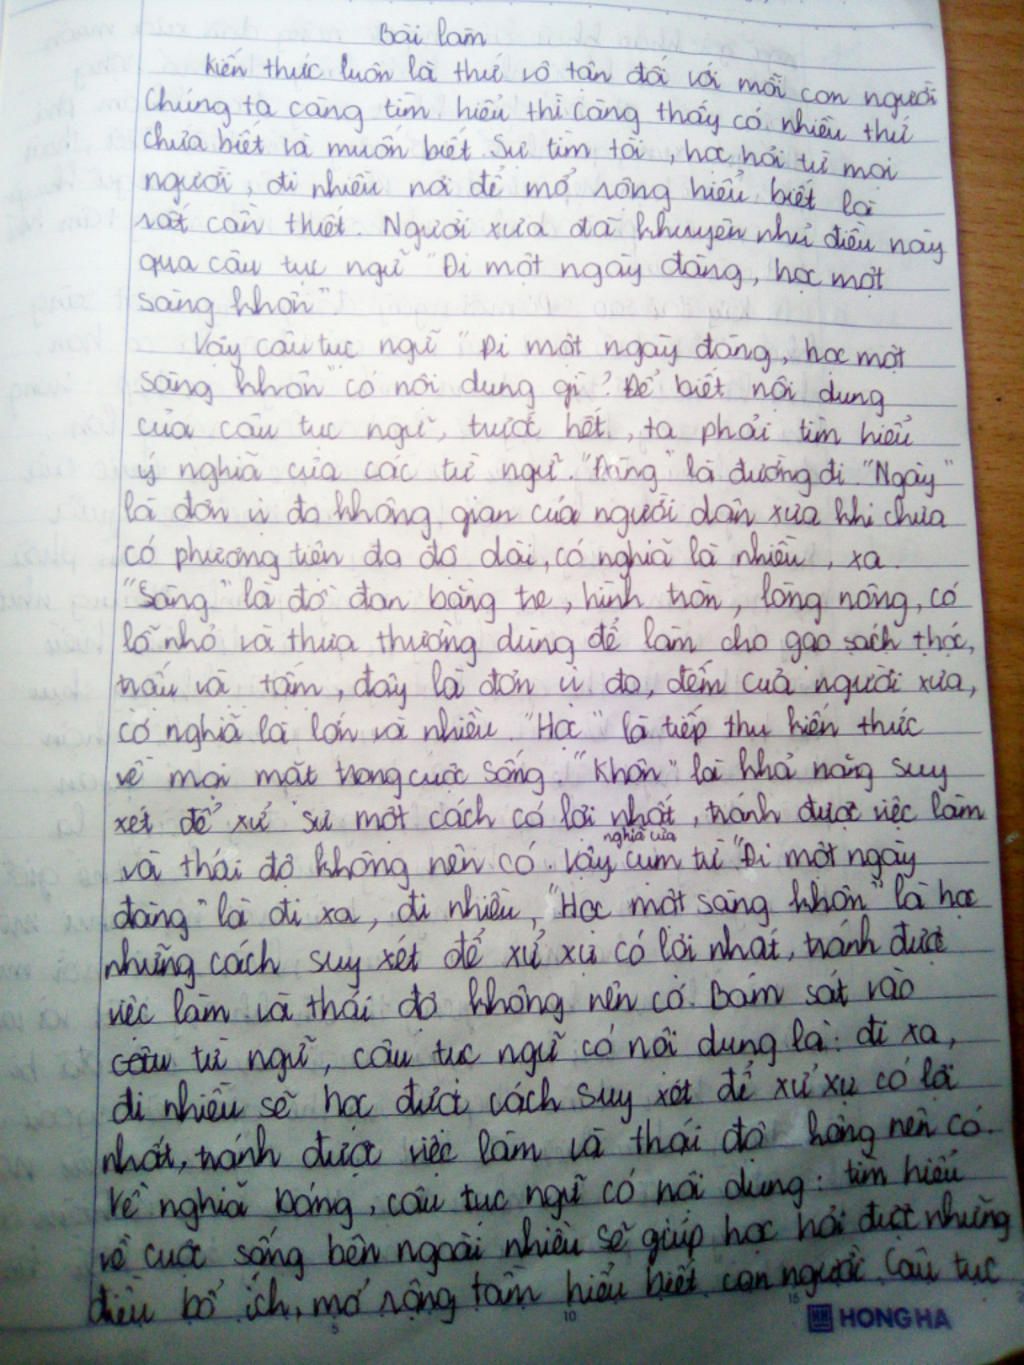 Bài làm
Kiến thức luôn là thứ vô tận đối với mỗi con người
Chúng ta càng tìm hiểu thì càng thấy có nhiều thứ
chưa biết và muốn biết. Sự tìm tòi, học hỏi từ mọi
người, đi nhiều nơi để mở rộng hiểu biết là
rất cần thiết. Người xưa đã khuyên như điều này
qua câu tục ngữ "Đi một ngày đàng, học một
sàng khôn"
Vậy câu tục ngữ "Đi một ngày đàng, học một
sàng khôn" có nội dung gì? Để biết nội dung
của câu tục ngữ, trước hết, ta phải tìm hiểu
ý nghĩa của các từ ngữ. "Đàng" là đường đi. "Ngày"
là đơn vị đo không gian của người dân xưa khi chưa
có phương tiện đo độ dài, có nghĩa là nhiều, xa.
"Sàng" là đồ đan bằng tre, hình tròn, lòng nông, có
lỗ nhỏ và thưa thường dùng để làm cho gạo sạch thóc,
trấu và tấm, đây là đơn vị đo, đếm của người xưa,
có nghĩa là lớn và nhiều. "Học" là tiếp thu kiến thức
về mọi mặt trong cuộc sống. "Khôn" là khả năng suy
xét để xử sự một cách có lợi nhất, tránh được việc làm
và thái độ không nên có. Vậy nghĩa của cụm từ "Đi một ngày
đàng" là đi xa, đi nhiều, "Học một sàng khôn" là học
những cách suy xét để xử xự có lợi nhất, tránh được
việc làm và thái độ không nên có. Bám sát vào
câu từ ngữ, câu tục ngữ có nội dung là: đi xa,
đi nhiều sẽ học được cách suy xét để xử xự có lợi
nhất, tránh được việc làm và thái độ hông nên có.
Về nghĩa bóng, câu tục ngữ có nội dung: tìm hiểu
về cuộc sống bên ngoài nhiều sẽ giúp học hỏi được những
điều bổ ích, mở rộng tầm hiểu biết con người. Câu tục
5 10 15
HONG HA